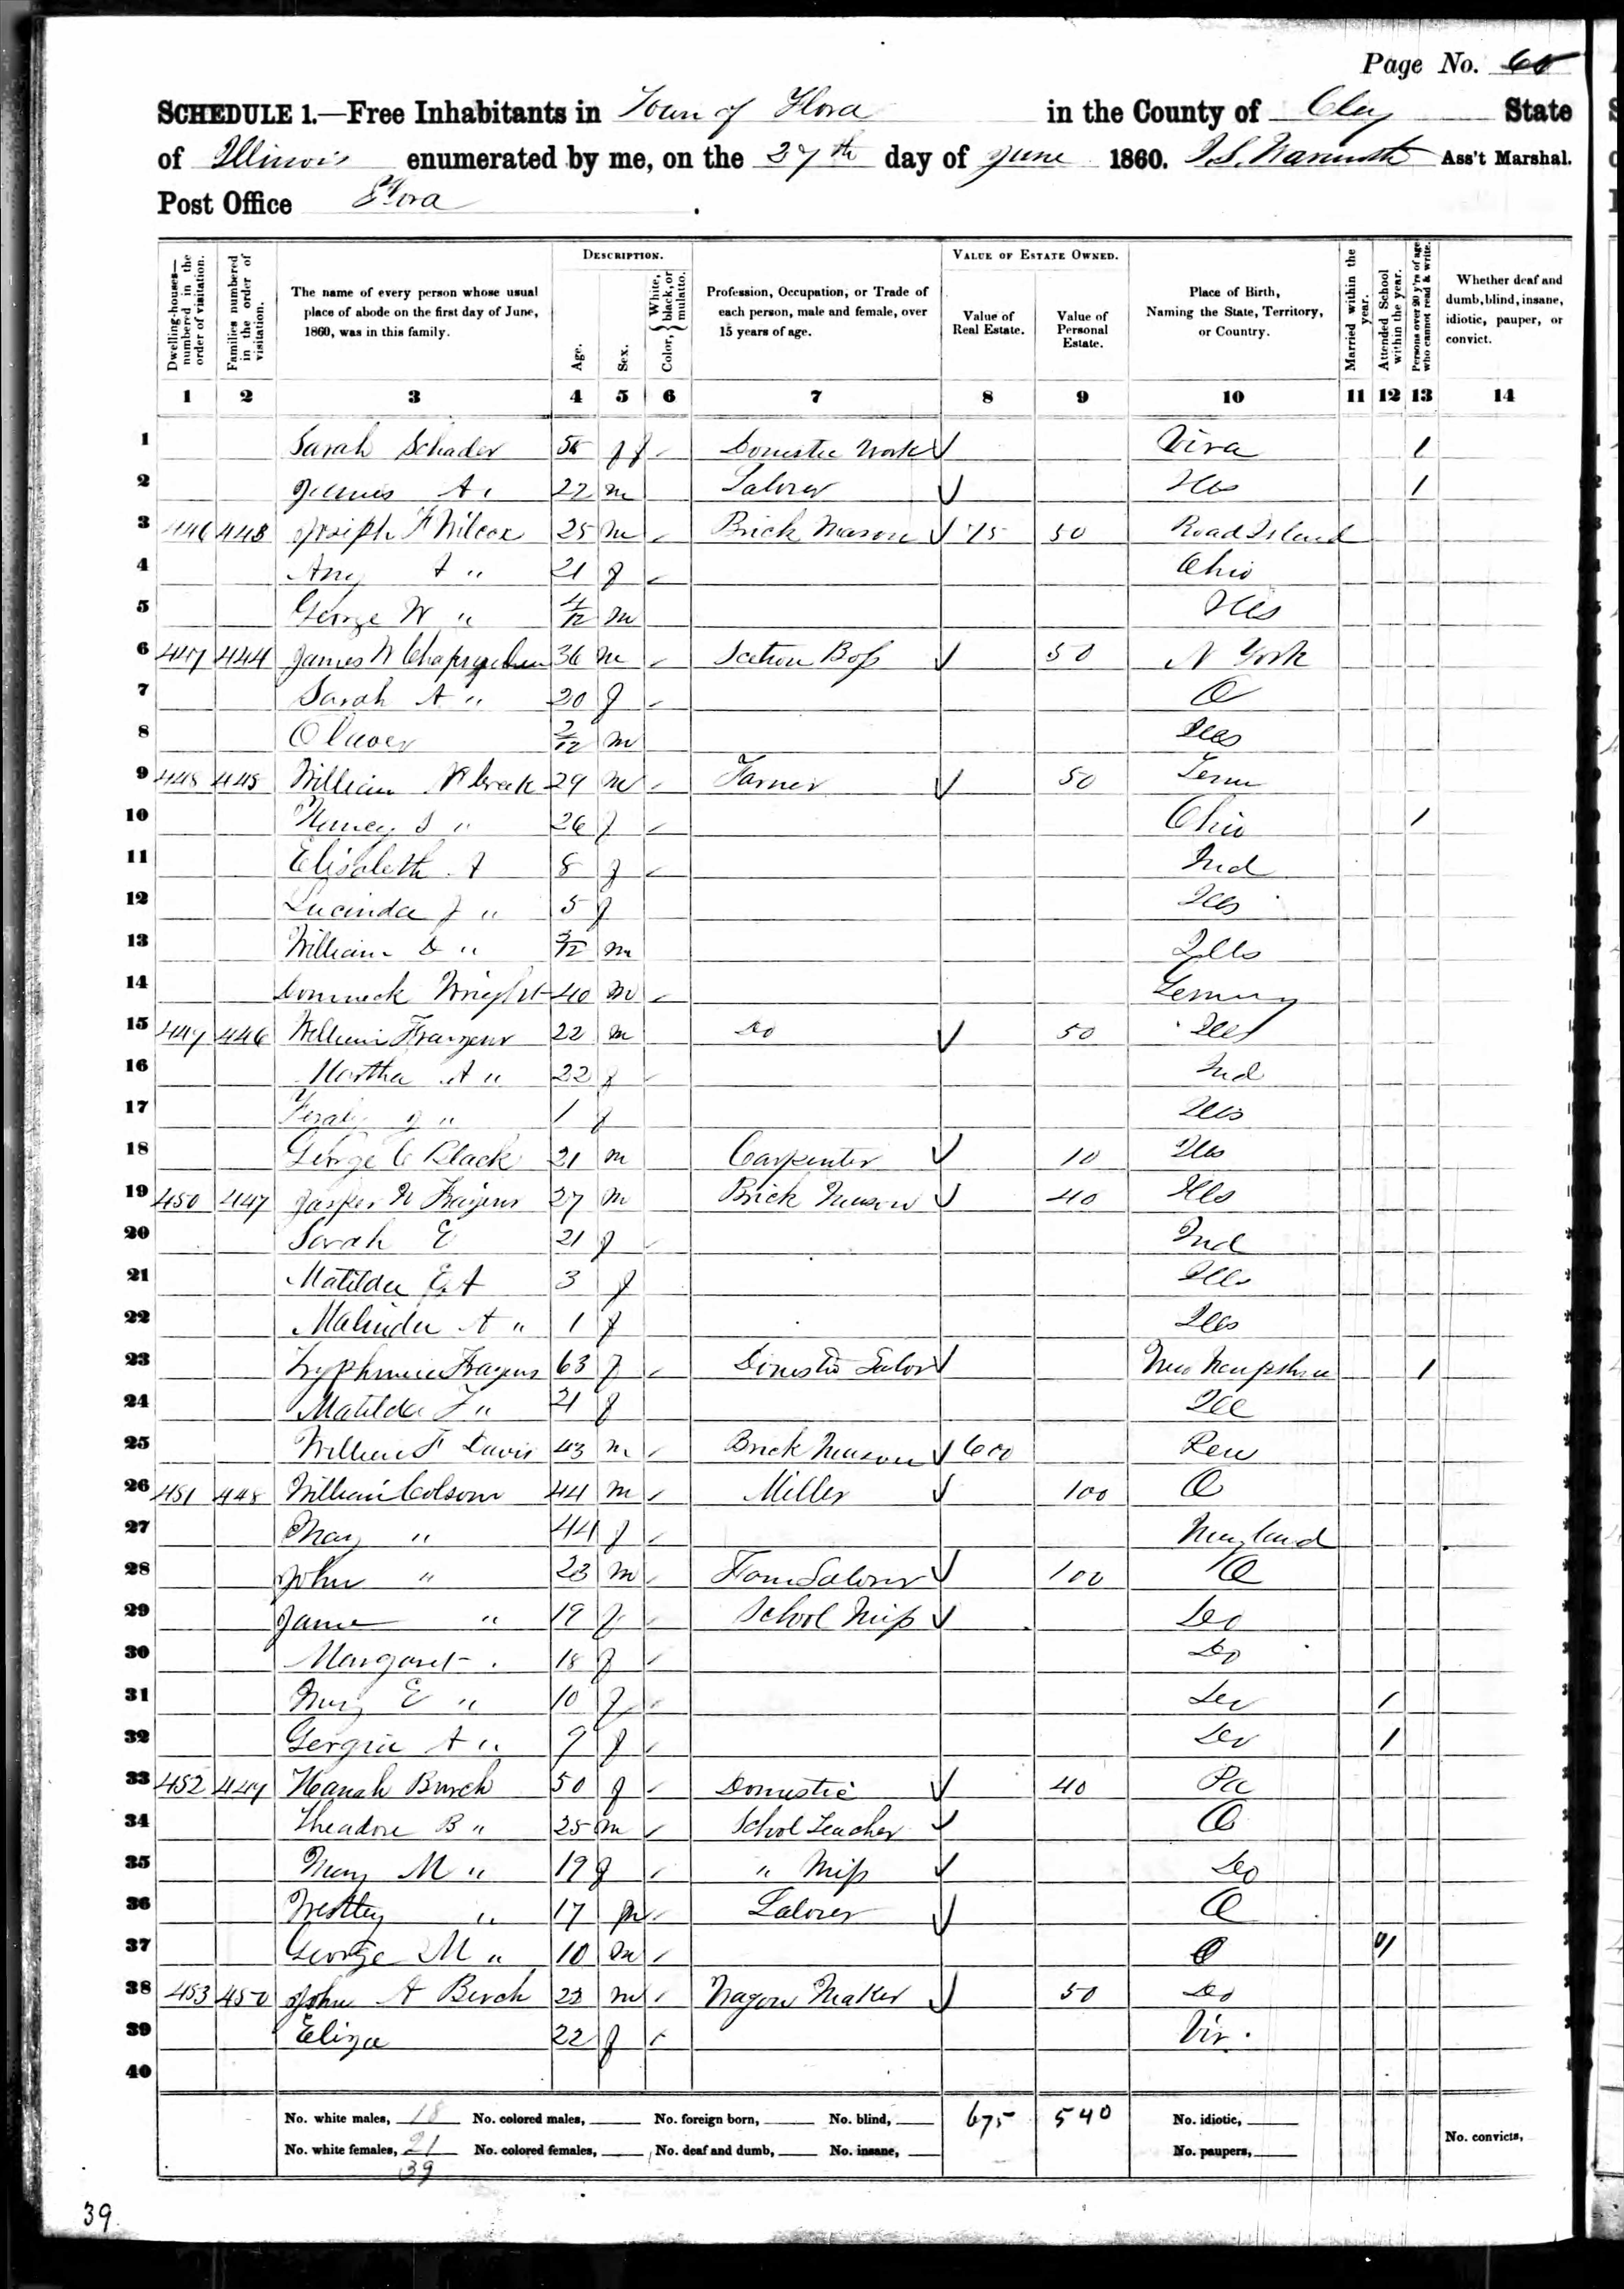 Page No.
SCHEDULE 1.—Free Inhabitants in Town of Flora in the County of Clay State
of Illinois enumerated by me, on the 27th day of June 1860. Ass't Marshal.
Post Office Flora
Dwelling-houses—numbered in the order of visitation.
Families numbered in the order of visitation.
The name of every person whose usual place of abode on the first day of June, 1860, was in this family.
DESCRIPTION.
Age.
Sex.
Color, { White, black, or mulatto.
Profession, Occupation, or Trade of each person, male and female, over 15 years of age.
VALUE OF ESTATE OWNED.
Value of Real Estate.
Value of Personal Estate.
Place of Birth, Naming the State, Territory, or Country.
Married within the year.
Attended School within the year.
Persons over 20 y'rs of age who cannot read & write.
Whether deaf and dumb, blind, insane, idiotic, pauper, or convict.
1 2 3 4 5 6 7 8 9 10 11 12 13 14
1 Sarah Schader f Domestic Work 1
2 James A " 22 m Laborer Ills 1
3 446 443 Joseph F Wilcox 25 m Brick Mason 75 50 Road Island
4 " 21 f Ohio
5 George W " 4/12 m Ills
6 447 444 James W 36 m Section Boss 50 N York
7 Sarah A " 20 f O
8 m Ills
9 448 445 William 29 m Farmer 50 Tenn
10 " 26 f Ohio 1
11 Elisabeth A 8 f Ind
12 Lucinda J " 5 f Ills
13 William D " m Ills
14 Domneck Wright 40 m
15 449 446 William 22 m Do 50 Ills
16 Martha A " 22 f Ind
17 " 1 f Ills
18 George C Black 21 m Carpenter 10 Ills
19 450 447 Jasper N 27 m Brick Mason 40 Ills
20 Sarah E 21 f Ind
21 Matilda E A 3 f Ills
22 Malinda A " 1 f Ills
23 63 f Domestic Labor New Hampshire 1
24 Matilda " 21 f Ill
25 William F Davis 43 m Brick Mason 600
26 451 448 William Colsom 44 m Miller 100 O
27 Mary " 44 f Maryland
28 John " 23 m Farm Laborer 100 O
29 Jane " 19 f School Miss Do
30 Margaret 18 f Do
31 Mary E " 10 f Do 1
32 Gergia A " f Do 1
33 452 449 Hanah Burch 50 f Domestic 40 Pa
34 Theadore B " 25 m School Teacher O
35 Mary M " 19 f " Miss Do
36 Westley " 17 m Laborer O
37 George M " 10 m O 1
38 453 450 John A Burch 22 m Wagon Maker 50 Do
39 Eliza 22 f Vir.
40
No. white males, 18 No. colored males, No. foreign born, No. blind, 675 540 No. idiotic,
No. white females, 21 No. colored females, No. deaf and dumb, No. insane, No. paupers, No. convicts,
39
39